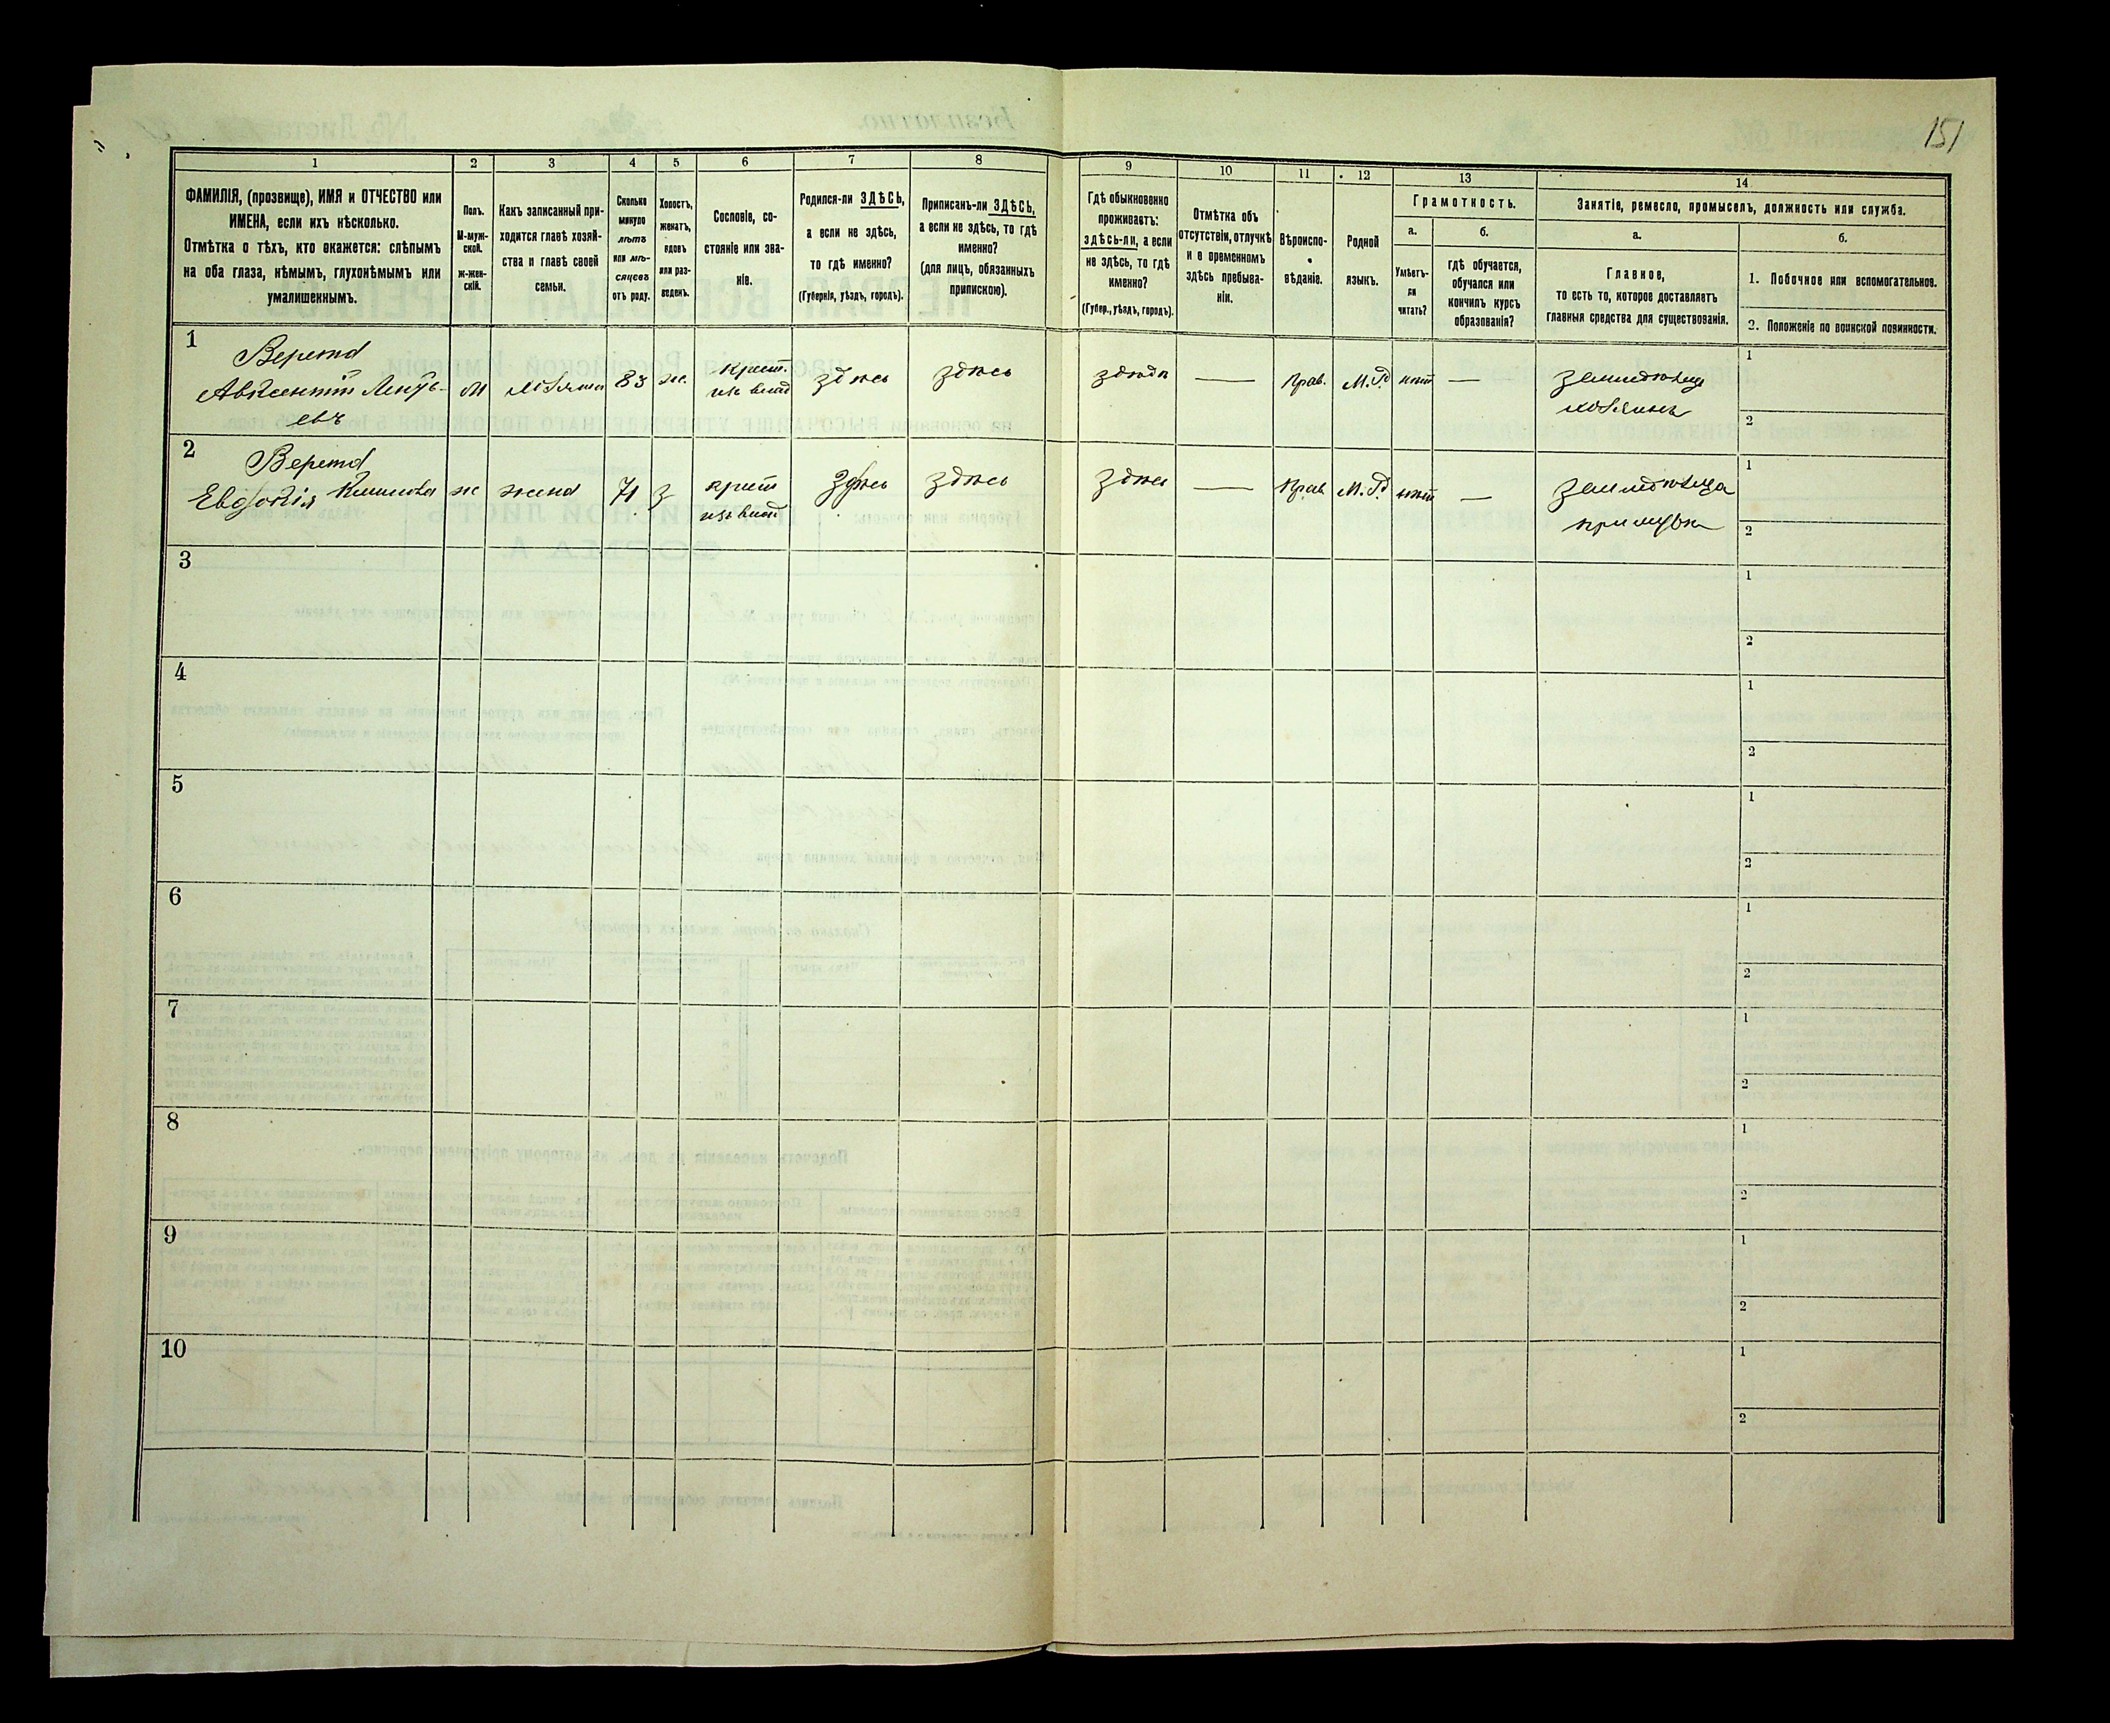 151
1
2
3
4
5
6
7
8
9
10
11
12
13
14
ФАМИЛІЯ, (прозвище), ИМЯ и ОТЧЕСТВО или
ИМЕНА, если ихъ нѣсколько.
Отмѣтка о тѣхъ, кто окажется: слѣпымъ
на оба глаза, нѣмымъ, глухонѣмымъ или
умалишеннымъ.
Полъ.
М-муж-
ской.
ж-жен-
скій.
Какъ записанный при-
ходится главѣ хозяй-
ства и главѣ своей
семьи.
Сколько
минуло
лѣтъ
или мѣ-
сяцевъ
отъ роду.
Холостъ,
женатъ,
вдовъ
или раз-
веденъ.
Сословіе, со-
стояніе или зва-
ніе.
Родился-ли ЗДѢСЬ,
а если не здѣсь,
то гдѣ именно?
(Губернія, уѣздъ, городъ).
Приписанъ-ли ЗДѢСЬ,
а если не здѣсь, то гдѣ
именно?
(для лицъ, обязанныхъ
припискою).
Гдѣ обыкновенно
проживаетъ:
здѣсь-ли, а если
не здѣсь, то гдѣ
именно?
(Губер., уѣздъ, городъ).
Отмѣтка объ
отсутствіи, отлучкѣ
и о временномъ
здѣсь пребыва-
ніи.
Вѣроиспо-
вѣданіе.
Родной
языкъ.
Грамотность.
а.
Умѣетъ-
ли
читать?
б.
гдѣ обучается,
обучался или
кончилъ курсъ
образованія?
Занятіе, ремесло, промыселъ, должность или служба.
а.
Главное,
то есть то, которое доставляетъ
главныя средства для существованія.
б.
1. Побочное или вспомогательное.
2. Положеніе по воинской повинности.
1
Авксентій
евъ
м
83
же.
крест.
изъ влад
здѣсь
здѣсь
здѣсь
—
Прав.
М. Р.
нѣт
—
1
2
2
Евдокія
ж
жена
71
з
крест
изъ влад
здѣсь
здѣсь
здѣсь
—
Прав
М. Р.
нѣт
—
1
2
3
1
2
4
1
2
5
1
2
6
1
2
7
1
2
8
1
2
9
1
2
10
1
2